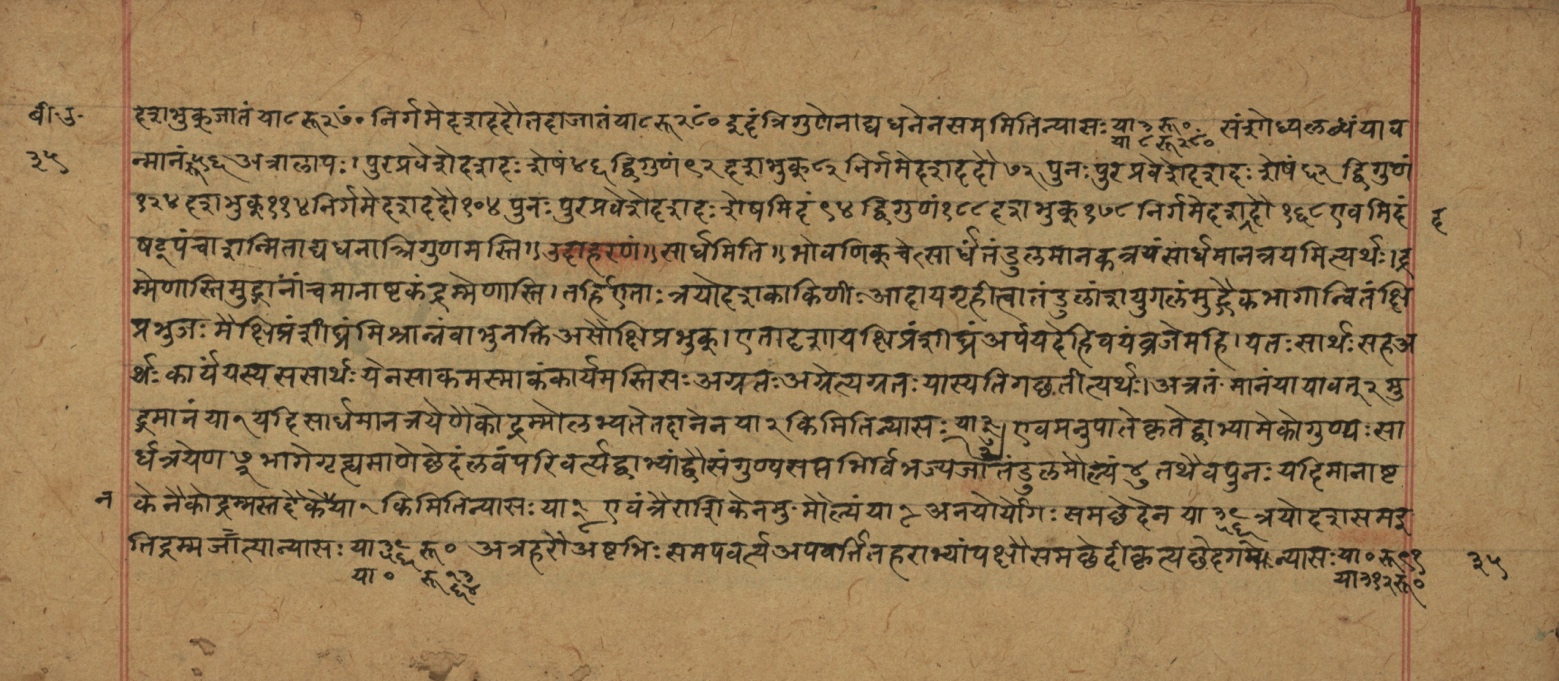 बी उ. दशभुक्जातं या ८ रू २७ं० निर्गमे दशददौ तदा जातं या ८ रू २८ं० इदं त्रिगुणेनाद्यधनेन सममिति न्यासः या ३ रू ० संशोध्य लब्धं याव
या ८ रू २८ं०
३५ न्मानं ५६ अत्रालापः। पुरप्रवेशे दशदः शेषं ४६ द्विगुणं ९२ दशभुक् ८२ निर्गमे दशददौ ७२ पुनः पुरप्रवेशे दशदः शेषं ६२ द्विगुणं
१२४ दशभुक् ११४ निर्गमे दशददौ १०४ पुनः पुरप्रवेशे दशदः शेषमिदं ९४ द्विगुणं १८८ दशभुक् १७८ निर्गमे दशद्दौ १६८ एवमिदं द
षट्पंचाशन्मिताद्यधनात्रिगुणमस्ति॥ उदाहरणं॥ सार्धमिति॥ भो वणिक् चेत्सार्धं तंडुलमानकत्रयं सार्धमानत्रयमित्यर्थः। द्र
म्मेणास्ति मुद्गानां च मानाष्टकं द्रम्मेणास्ति। तर्हि एताः त्रयोदश काकिणीः आदाय गृहीत्वा तंडुलांशयुगलं मुद्गैकभागान्वितं क्षि
प्रभुजः मै क्षिप्रं शीघ्रं मिश्रान्नं वा भुनक्ति असौ क्षिप्रभुक्। एतादृशाय क्षिप्रं शीघ्रं अर्पय देहि वयं व्रजेमहि। यतः सार्थः सह अ
र्थः कार्यं यस्य स सार्थः येन साकमस्माकं कार्यमस्ति सः अग्रतः अग्रेत्यग्रतः यास्यति गछतीत्यर्थः। अत्र तं. मानं या यावत् २ मु
द्गमानं या १ यदि सार्धमानत्रयेणैको द्रम्मो लभ्यते तदानेन या २ किमिति न्यासः या २ एवमनुपाते कृते द्वाभ्यामेको गुण्यः सा
र्धत्रयेण ७/२ भागे गृह्यमाणे छेदं लवं परिवर्त्य द्वाभ्यां द्वौ संगुण्य सप्तभिर्विभज्य जातं तंडुलमौल्यं ४/७ तथैव पुनः यदि मानाष्ट
न केनैको द्रम्मस्तदैकेन या १ किमिति न्यासः या १/८ एवं त्रैराशिकेन मु. मौल्यं या १/८ अनयोर्योगः समछेदेन या ३९/५६ त्रयोदश समइ
ति द्रम्मजात्या न्यासः या ३९/५६ रू ० अत्र हरौ अष्टभिः समपवर्त्य अपवर्त्तितहराभ्यां पक्षौ समछेदीकृत्य छेदगमे न्यासः या ० रू ९१ ३५
या ० रू १३/६४ या ३१२ रू ०